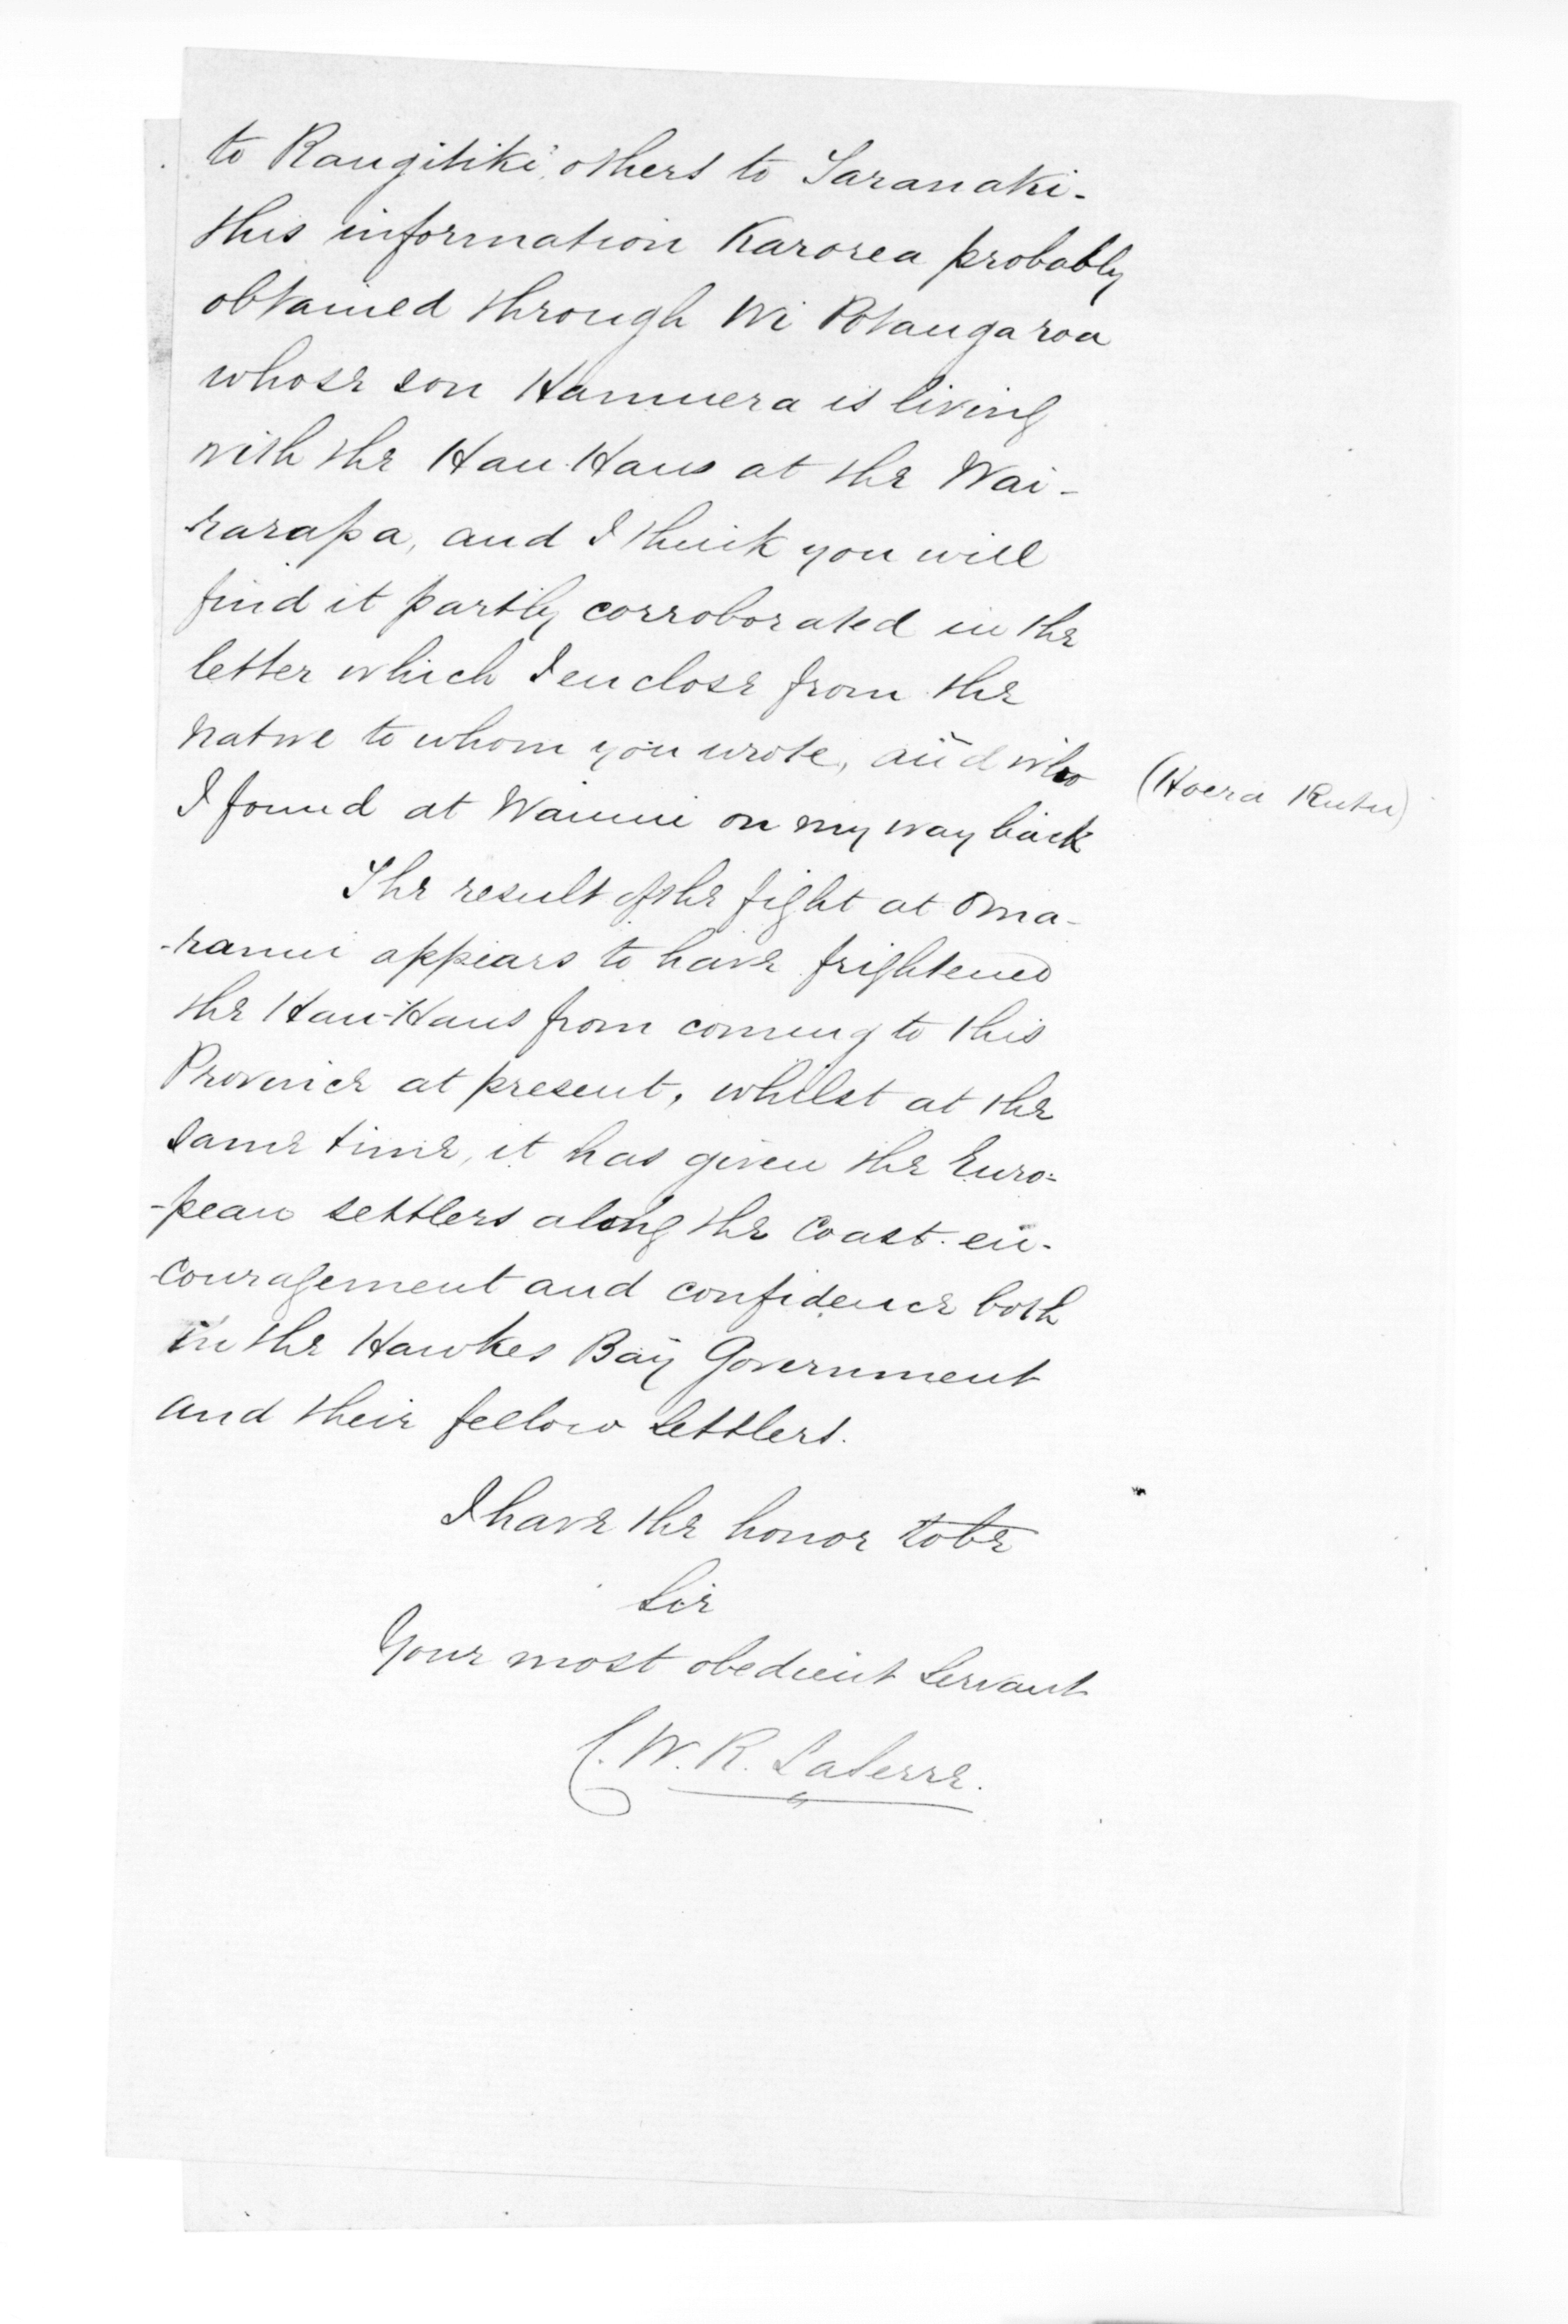 to Rangitiki, others to Taranaki-
this information Karorea probably
obtained through Wi Potangaroa
whose son Hamuera is living
with the Hau Haus at the Wai-
rarapa, and I think you will
find it partly corroborated in the
letter which I enclose from the
native to whom you wrote, and who (Hoera Rutu)
I found at Wainui on my way back
The result of the fight at Oma-
-ranui appears to have frightened
the Hau-Haus from coming to this
Province at present, whilst at the
same time, it has given the Euro-
-pean settlers along the Coast en-
-couragement and confidence both
in the Hawkes Bay Government
and their fellow Settlers.
I have the honor to be
Sir
Your most obedient Servant
C. W. R. LaSerre.